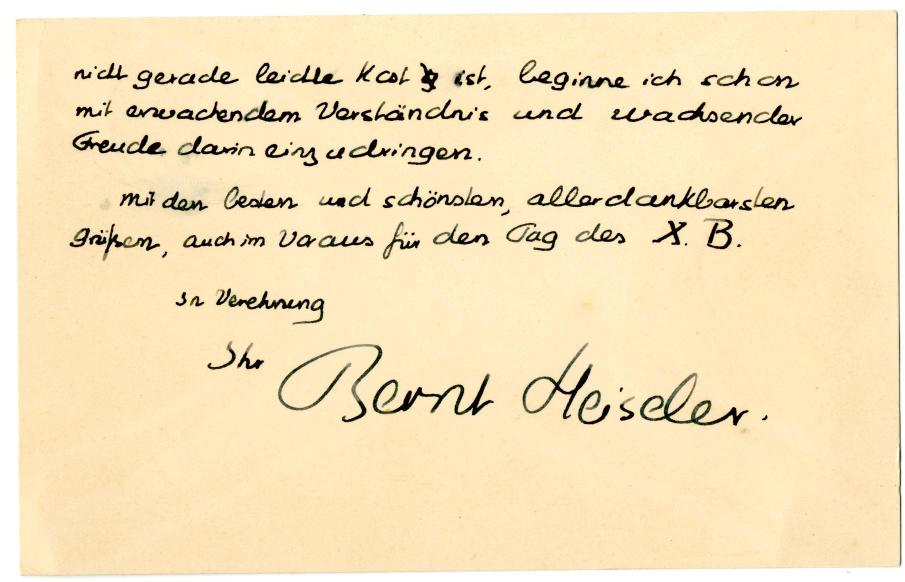 nicht gerade leichte Kost ist, beginne ich schon
mit erwachendem Verständnis und wachsender
Freude darin einzudringen.
mit den besten und schönsten, allerdankbarsten
grüßen, auch im Voraus für den Tag des X. B.
In Verehrung
Ihr Bernt Heiseler.